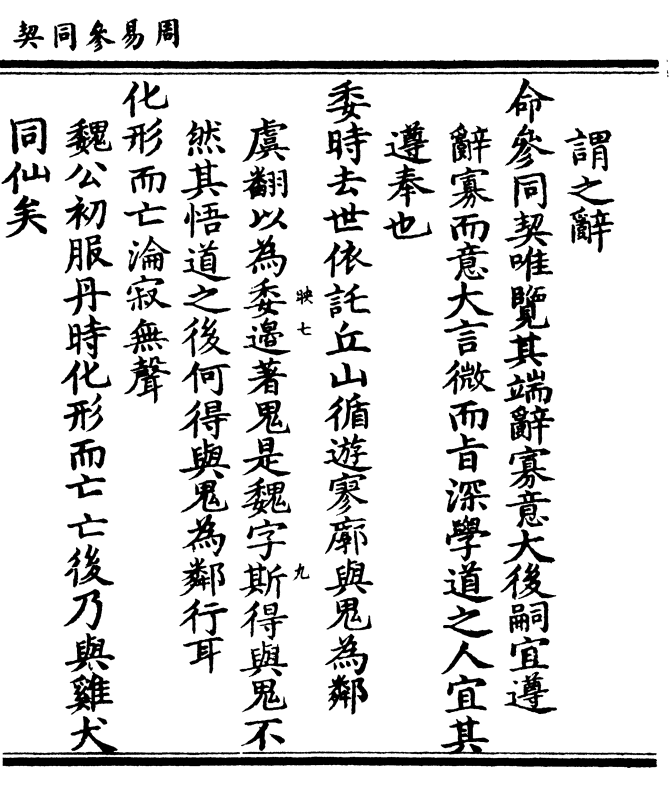 周易參同契
謂之辭
命參同契唯覽其端辭寡意大後嗣宜遵
辭寡而意大言微而旨深學道之人宜其
遵奉也
委時去世依託丘山循遊寥廓與鬼為鄰
映七
九
虞翻以為委邉著鬼是魏字斯得與鬼不
然其悟道之後何得與鬼為鄰行耳
化形而亡淪寂無聲
魏公初服丹時化形而亡亡後乃與雞犬
同仙矣